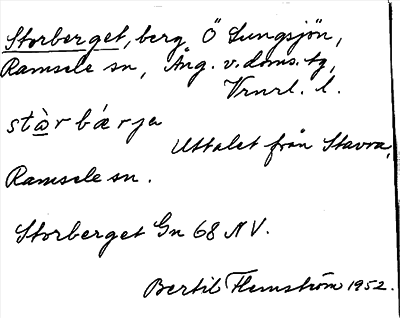 Storberget, berg Ö Lungsjön,
Ramsele sn, Ång. v. doms. tg,
Vrnrl. l.
stὰr bǽrja
Uttalet från Stavra,
Ramsele sn.
Storberget Gn 68 NV.
Bertil Flemström 1952.